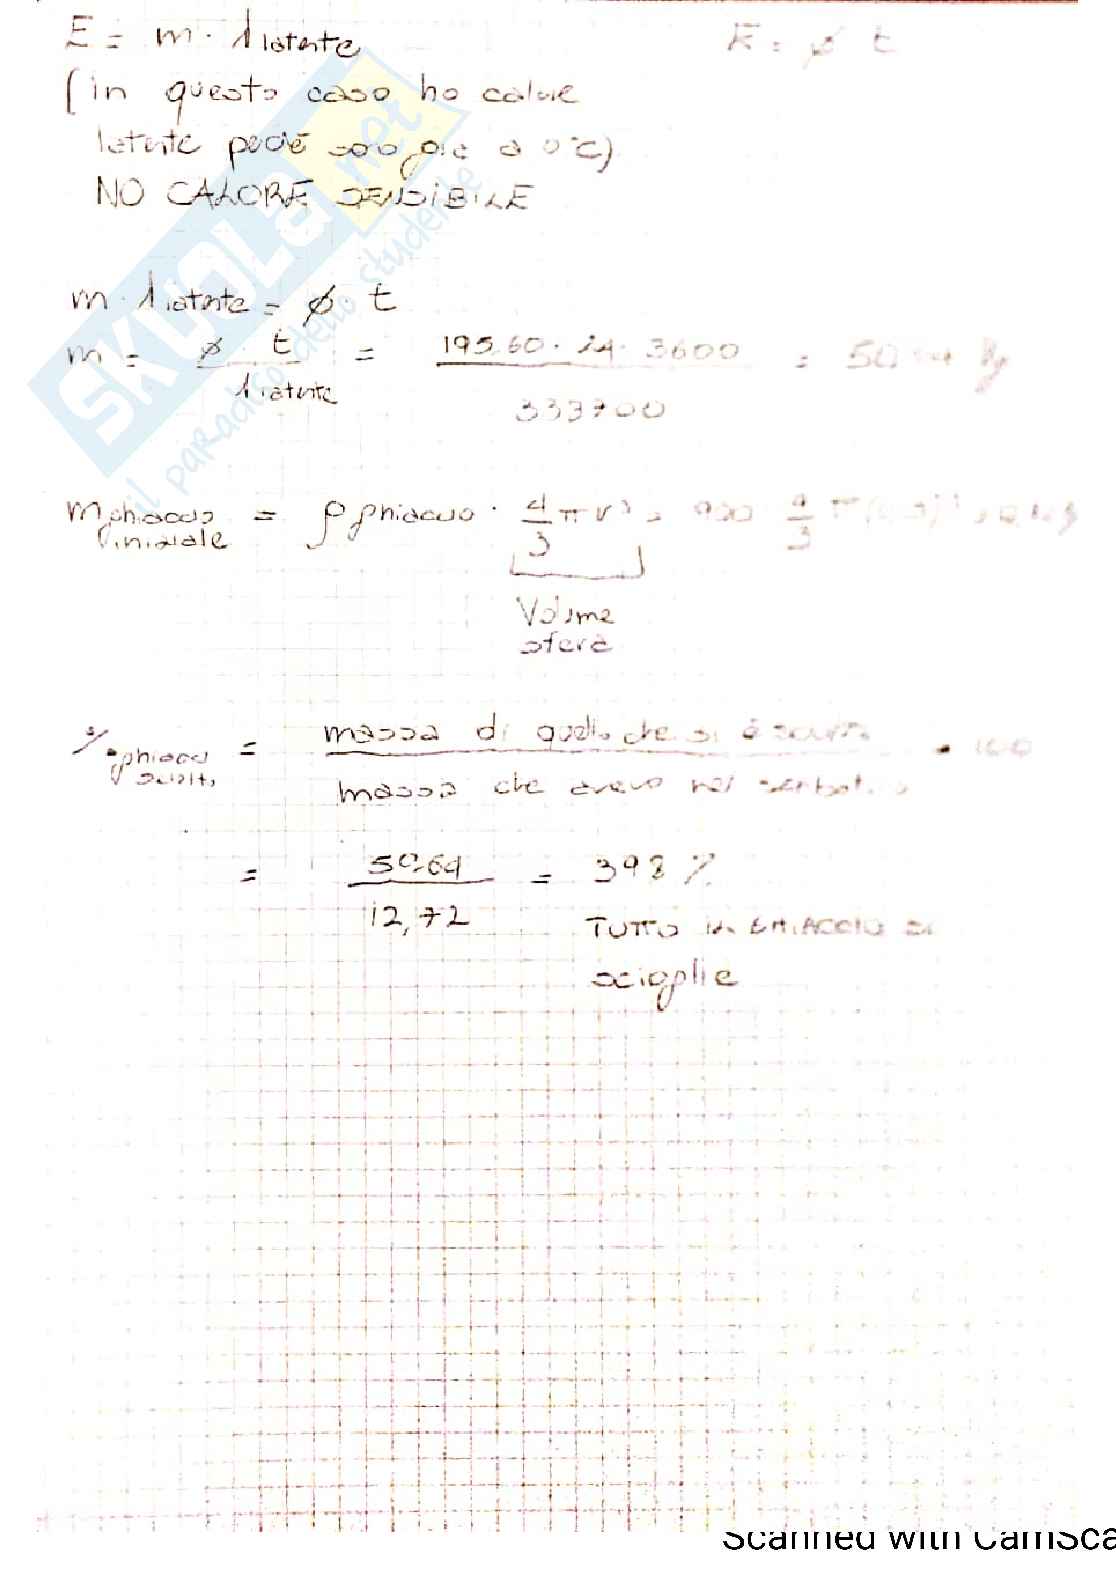 E = m · λ latente E = φ t
(in questo caso ho calore
latente perché sono già a 0°C)
NO CALORE SENSIBILE
m · λ latente = φ · t
m = φ · t / λ latente = 195,60 · 24 · 3600 / 333700 = 50,64 kg
m ghiaccio iniziale = ρ ghiaccio · 4/3 π r³ = 900 4/3 π
Volume
sfera
% ghiaccio sciolto = massa di quello che si è sciolto / massa che avevo nel serbatoio · 100
= 50,64 / 12,72 = 398 %
TUTTO IL GHIACCIO SI
scioglie
SKUOLA.net
il paradiso dello studente
Scanned with CamSca